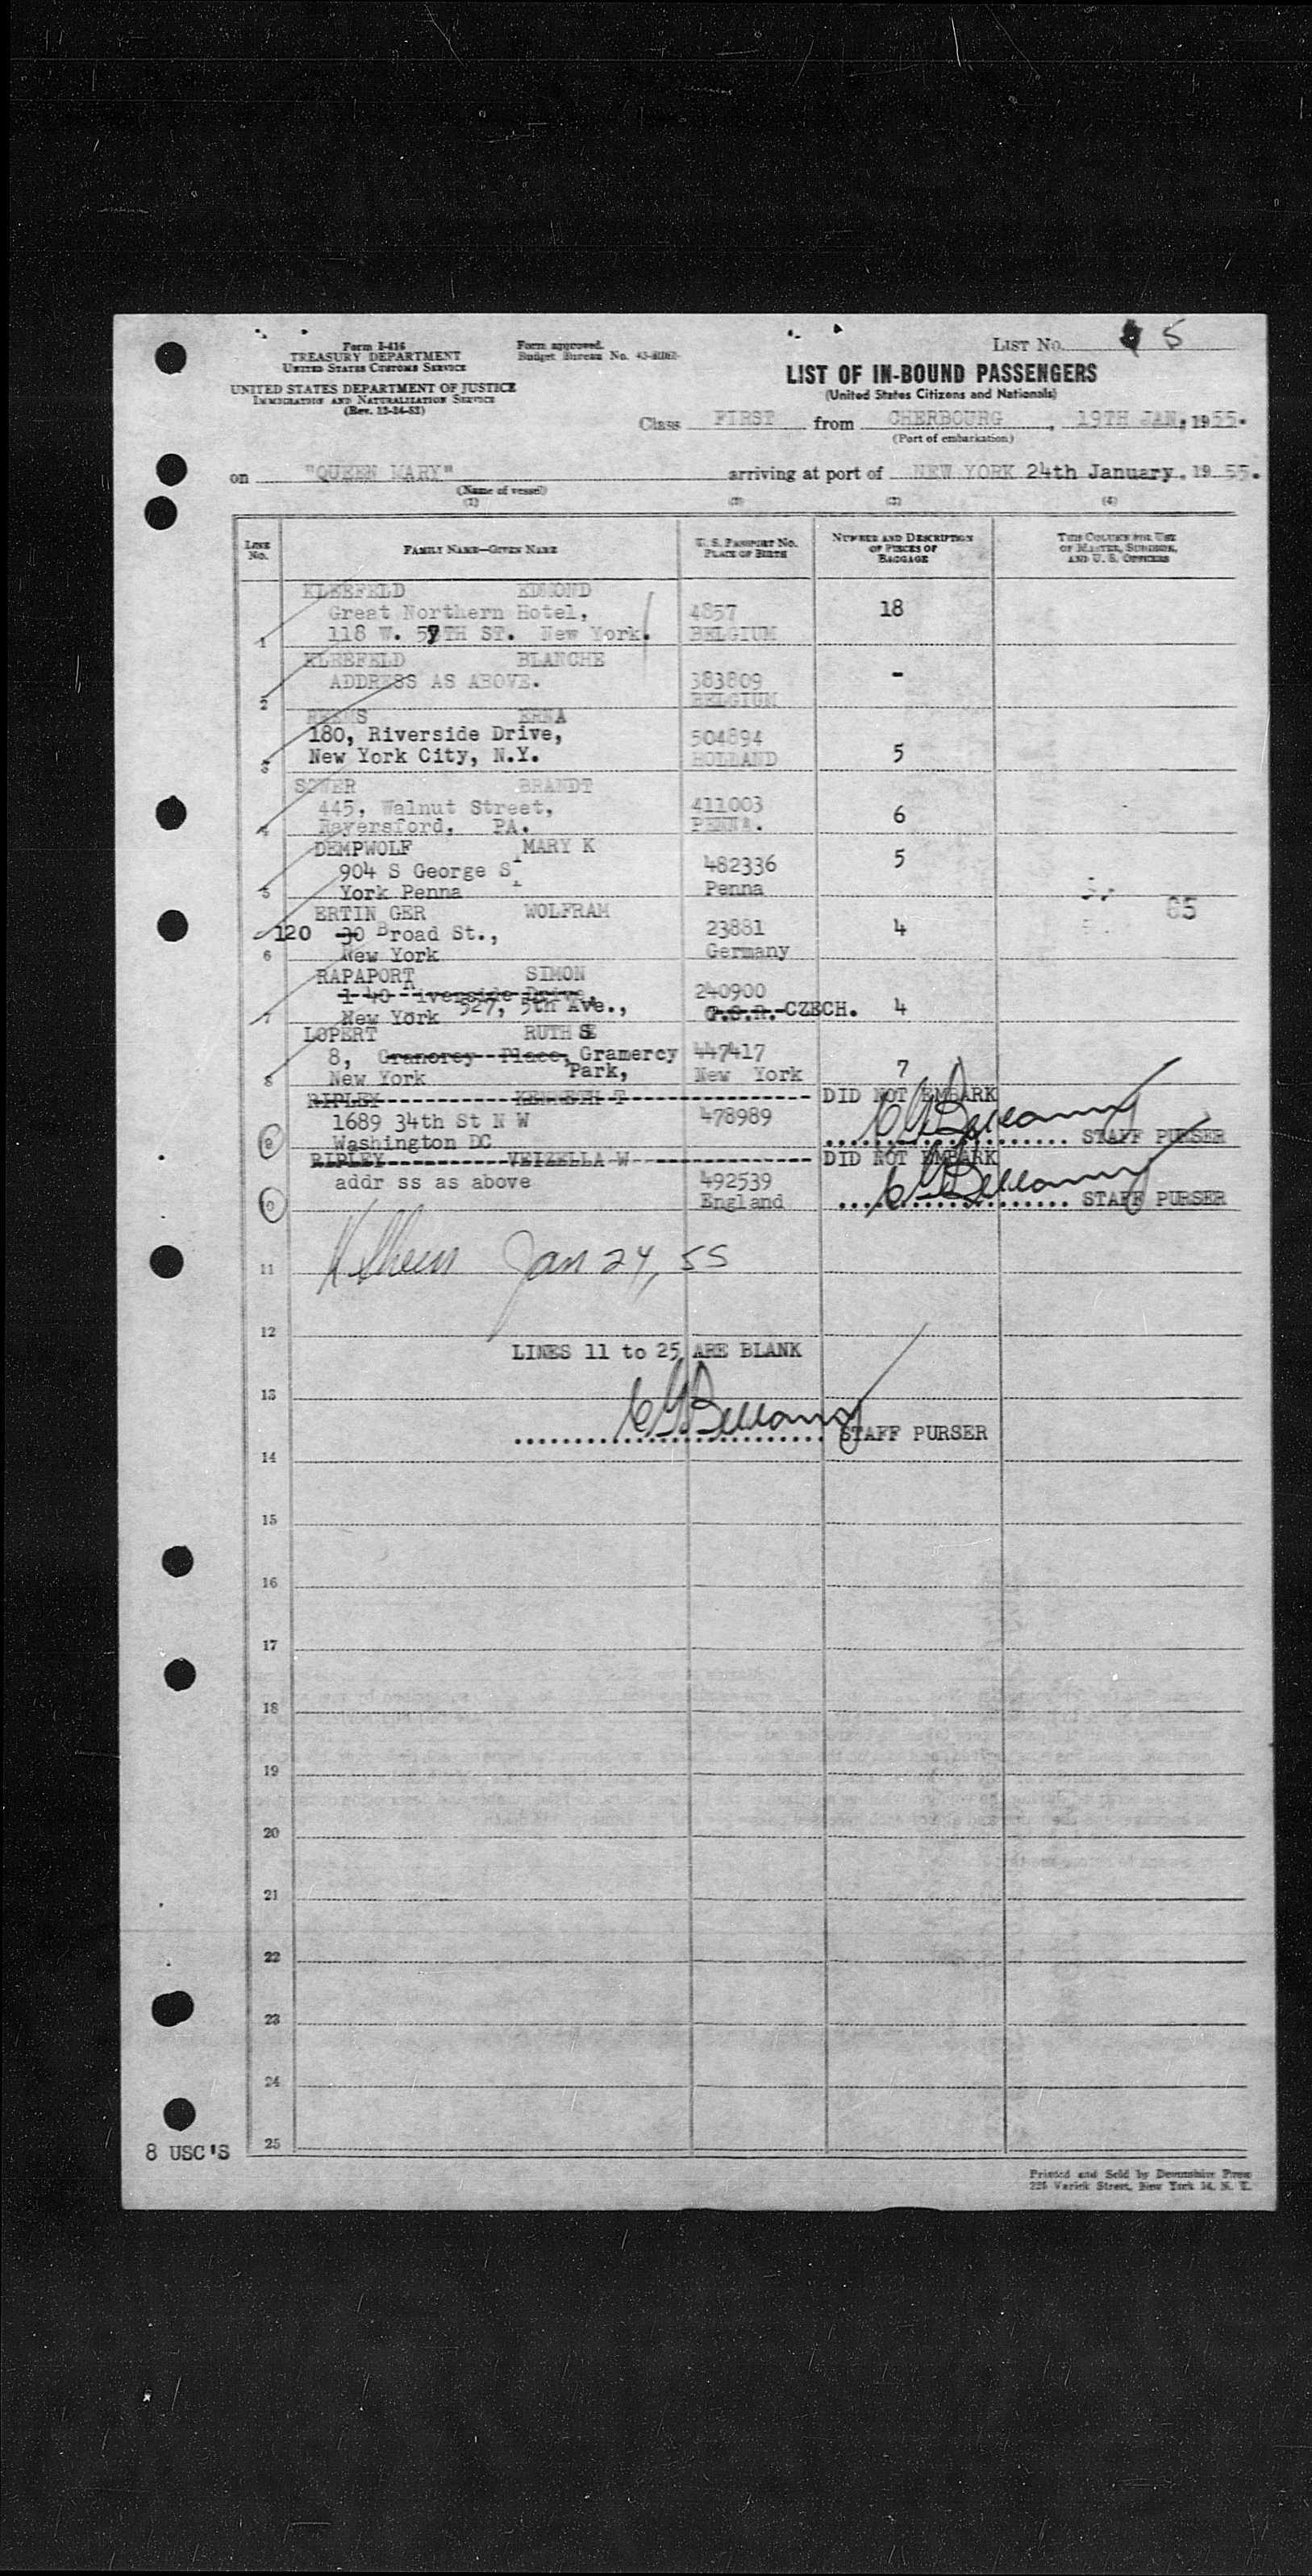 Form I-416
TREASURY DEPARTMENT
UNITED STATES CUSTOMS SERVICE
UNITED STATES DEPARTMENT OF JUSTICE
IMMIGRATION AND NATURALIZATION SERVICE
(Rev. 12-24-52)
Form approved.
Budget Bureau No.
LIST No. 5
LIST OF IN-BOUND PASSENGERS
(United States Citizens and Nationals)
Class FIRST from CHERBOURG, 19TH JAN, 1955.
(Port of embarkation)
on "QUEEN MARY" arriving at port of NEW YORK 24th January, 1955.
(Name of vessel)
(1) (2) (3) (4)
LINE No.
FAMILY NAME—GIVEN NAME
U. S. PASSPORT No.
PLACE OF BIRTH
NUMBER AND DESCRIPTION OF PIECES OF BAGGAGE
THIS COLUMN FOR USE OF MASTER, SURGEON, AND U. S. OFFICERS
KLEEFELD EDMOND
Great Northern Hotel, 4857 18
1 118 W. 57TH ST. New York. BELGIUM
KLEEFELD BLANCHE
ADDRESS AS ABOVE. 383809 -
2 BELGIUM
REENS ERNA
180, Riverside Drive, 504894
3 New York City, N.Y. HOLLAND 5
SOWER BRANDT
445, Walnut Street, 411003 6
4 Royersford, PA. PENNA.
DEMPWOLF MARY K
904 S George St 482336 5
5 York Penna Penna
65
ERTIN GER WOLFRAM
120 30 Broad St., 23881 4
6 New York Germany
RAPAPORT SIMON
1 40 Riverside Drive, 240900
7 New York 527, 5th Ave., C.S.R. CZECH. 4
LOPERT RUTH SE
8, Granorcy Place, Gramercy Park, 447417
8 New York New York 7
RIPLEY KENNETH T DID NOT EMBARK
1689 34th St N W 478989
9 Washington DC CGBellamy STAFF PURSER
RIPLEY VEIZELLA W DID NOT EMBARK
addr ss as above 492539
10 England CGBellamy STAFF PURSER
Jan 24, 55
11
12
LINES 11 to 25 ARE BLANK
13
CGBellamy STAFF PURSER
14
15
16
17
18
19
20
21
22
23
24
25
8 USC'S
Printed and Sold by Devonshire Press
225 Varick Street, New York 14, N. Y.